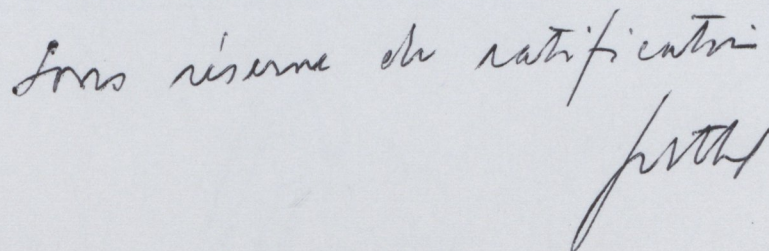 Sous réserve de ratification